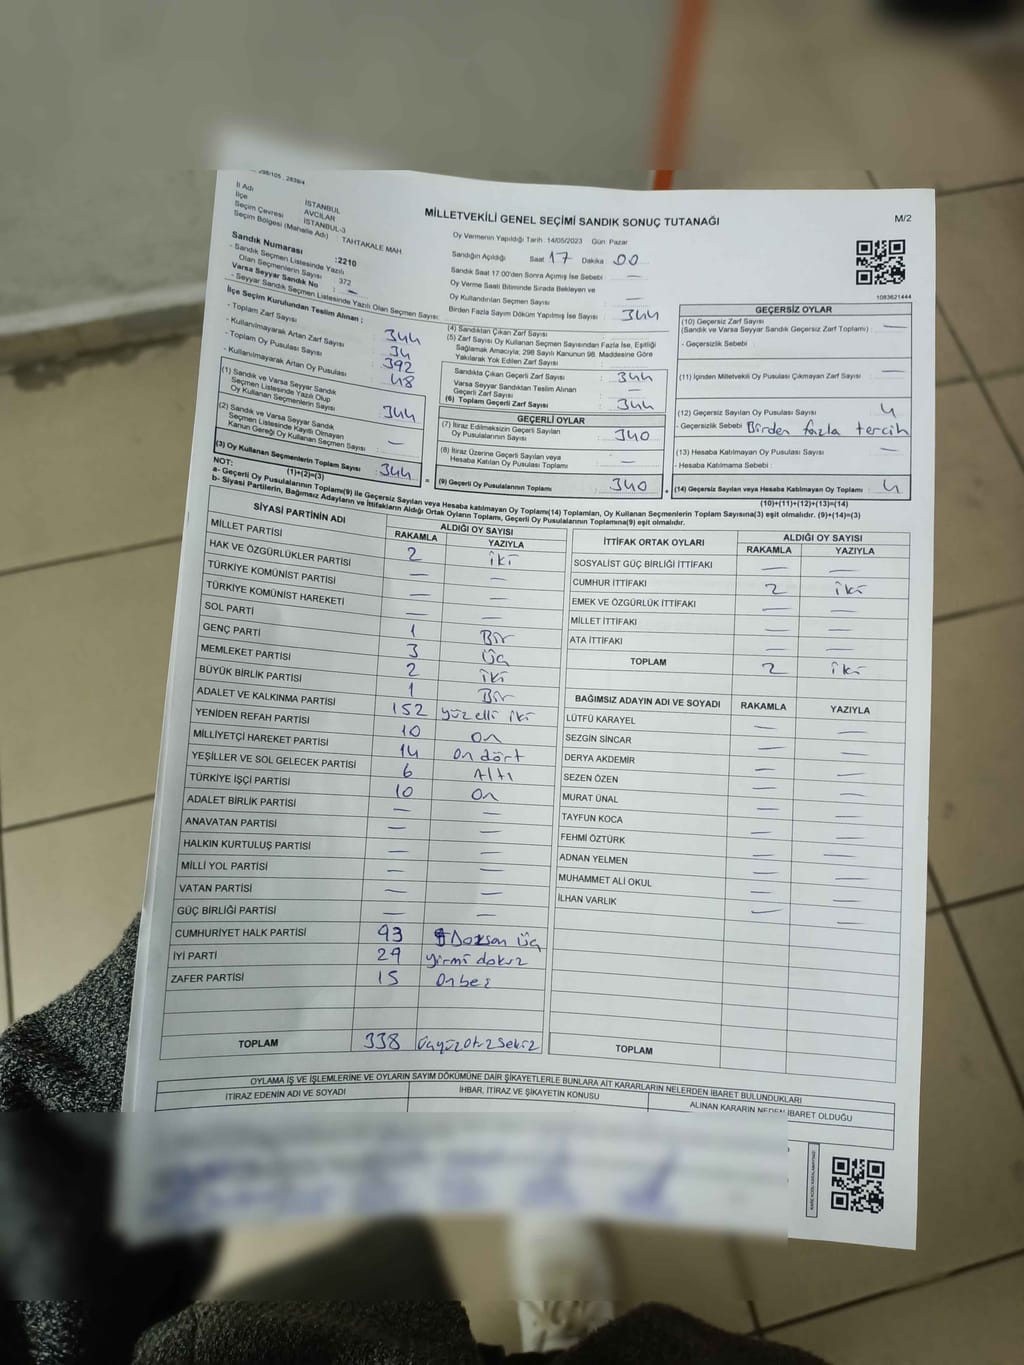 298/105 . 2839/4
MİLLETVEKİLİ GENEL SEÇİMİ SANDIK SONUÇ TUTANAĞI
M/2
İl Adı : İSTANBUL
İlçe : AVCILAR
Seçim Çevresi : İSTANBUL-3
Seçim Bölgesi (Mahalle Adı) : TAHTAKALE MAH.
Sandık Numarası :2210
- Sandık Seçmen Listesinde Yazılı
Olan Seçmenlerin Sayısı : 372
Varsa Seyyar Sandık No : —
- Seyyar Sandık Seçmen Listesinde Yazılı Olan Seçmen Sayısı:
Oy Vermenin Yapıldığı Tarih :14/05/2023 Gün: Pazar
Sandığın Açıldığı Saat 17 Dakika 00
Sandık Saat 17:00'den Sonra Açımış İse Sebebi : —
Oy Verme Saati Bitiminde Sırada Bekleyen ve
Oy Kullandırılan Seçmen Sayısı : —
Birden Fazla Sayım Döküm Yapılmış İse Sayısı : 344
1083621444
İlçe Seçim Kurulundan Teslim Alınan ;
- Toplam Zarf Sayısı : 344
- Kullanılmayarak Artan Zarf Sayısı : 34
- Toplam Oy Pusulası Sayısı : 392
- Kullanılmayarak Artan Oy Pusulası : 48
(1) Sandık ve Varsa Seyyar Sandık
Seçmen Listesinde Yazılı Olup
Oy Kullanan Seçmenlerin Sayısı : 344
(2) Sandık ve Varsa Seyyar Sandık
Seçmen Listesinde Kayıtlı Olmayan
Kanun Gereği Oy Kullanan Seçmen Sayısı : —
(3) Oy Kullanan Seçmenlerin Toplam Sayısı : 344
(1)+(2)=(3)
(4) Sandıktan Çıkan Zarf Sayısı
(5) Zarf Sayısı Oy Kullanan Seçmen Sayısından Fazla İse, Eşitliği
Sağlamak Amacıyla; 298 Sayılı Kanunun 98. Maddesine Göre
Yakılarak Yok Edilen Zarf Sayısı
Sandıkta Çıkan Geçerli Zarf Sayısı : 344
Varsa Seyyar Sandıktan Teslim Alınan
Geçerli Zarf Sayısı : —
(6) Toplam Geçerli Zarf Sayısı : 344
GEÇERLİ OYLAR
(7) İtiraz Edilmeksizin Geçerli Sayılan
Oy Pusulalarının Sayısı : 340
(8) İtiraz Üzerine Geçerli Sayılan veya
Hesaba Katılan Oy Pusulası Toplamı : —
= (9) Geçerli Oy Pusulalarının Toplamı : 340
GEÇERSİZ OYLAR
(10) Geçersiz Zarf Sayısı
(Sandık ve Varsa Seyyar Sandık Geçersiz Zarf Toplamı) : —
- Geçersizlik Sebebi
(11) İçinden Milletvekili Oy Pusulası Çıkmayan Zarf Sayısı : —
(12) Geçersiz Sayılan Oy Pusulası Sayısı : 4
- Geçersizlik Sebebi : Birden fazla tercih
(13) Hesaba Katılmayan Oy Sayısı : —
- Hesaba Katılmama Sebebi :
+ (14) Geçersiz Sayılan veya Hesaba Katılmayan Oy Toplamı : 4
(10)+(11)+(12)+(13)=(14)
NOT:
a- Geçerli Oy Pusulalarının Toplamı(9) ile Geçersiz Sayılan veya Hesaba katılmayan Oy Toplamı(14) Toplamları, Oy Kullanan Seçmenlerin Toplam Sayısına(3) eşit olmalıdır. (9)+(14)=(3)
b- Siyasi Partilerin, Bağımsız Adayların ve İttifakların Aldığı Ortak Oyların Toplamı, Geçerli Oy Pusulalarının Toplamına(9) eşit olmalıdır.
SİYASİ PARTİNİN ADI ALDIĞI OY SAYISI
RAKAMLA YAZIYLA
MİLLET PARTİSİ 2 iki
HAK VE ÖZGÜRLÜKLER PARTİSİ — —
TÜRKİYE KOMÜNİST PARTİSİ — —
TÜRKİYE KOMÜNİST HAREKETİ — —
SOL PARTİ 1 Bir
GENÇ PARTİ 3 Üç
MEMLEKET PARTİSİ 2 iki
BÜYÜK BİRLİK PARTİSİ 1 Bir
ADALET VE KALKINMA PARTİSİ 152 yüzelli iki
YENİDEN REFAH PARTİSİ 10 on
MİLLİYETÇİ HAREKET PARTİSİ 14 on dört
YEŞİLLER VE SOL GELECEK PARTİSİ 6 Altı
TÜRKİYE İŞÇİ PARTİSİ 10 On
ADALET BİRLİK PARTİSİ — —
ANAVATAN PARTİSİ — —
HALKIN KURTULUŞ PARTİSİ — —
MİLLİ YOL PARTİSİ — —
VATAN PARTİSİ — —
GÜÇ BİRLİĞİ PARTİSİ — —
CUMHURİYET HALK PARTİSİ 93 Doksan Üç
İYİ PARTİ 29 yirmi dokuz
ZAFER PARTİSİ 15 Onbeş
TOPLAM 338 üçyüzOtuzSekiz
İTTİFAK ORTAK OYLARI ALDIĞI OY SAYISI
RAKAMLA YAZIYLA
SOSYALİST GÜÇ BİRLİĞİ İTTİFAKI — —
CUMHUR İTTİFAKI 2 iki
EMEK VE ÖZGÜRLÜK İTTİFAKI — —
MİLLET İTTİFAKI — —
ATA İTTİFAKI — —
TOPLAM 2 iki
BAĞIMSIZ ADAYIN ADI VE SOYADI RAKAMLA YAZIYLA
LÜTFÜ KARAYEL — —
SEZGİN SİNCAR — —
DERYA AKDEMİR — —
SEZEN ÖZEN — —
MURAT ÜNAL — —
TAYFUN KOCA — —
FEHMİ ÖZTÜRK — —
ADNAN YELMEN — —
MUHAMMET ALİ OKUL — —
İLHAN VARLIK — —
TOPLAM
OYLAMA İŞ VE İŞLEMLERİNE VE OYLARIN SAYIM DÖKÜMÜNE DAİR ŞİKAYETLERLE BUNLARA AİT KARARLARIN NELERDEN İBARET BULUNDUKLARI
İTİRAZ EDENİN ADI VE SOYADI İHBAR, İTİRAZ VE ŞİKAYETİN KONUSU ALINAN KARARIN NEDEN İBARET OLDUĞU